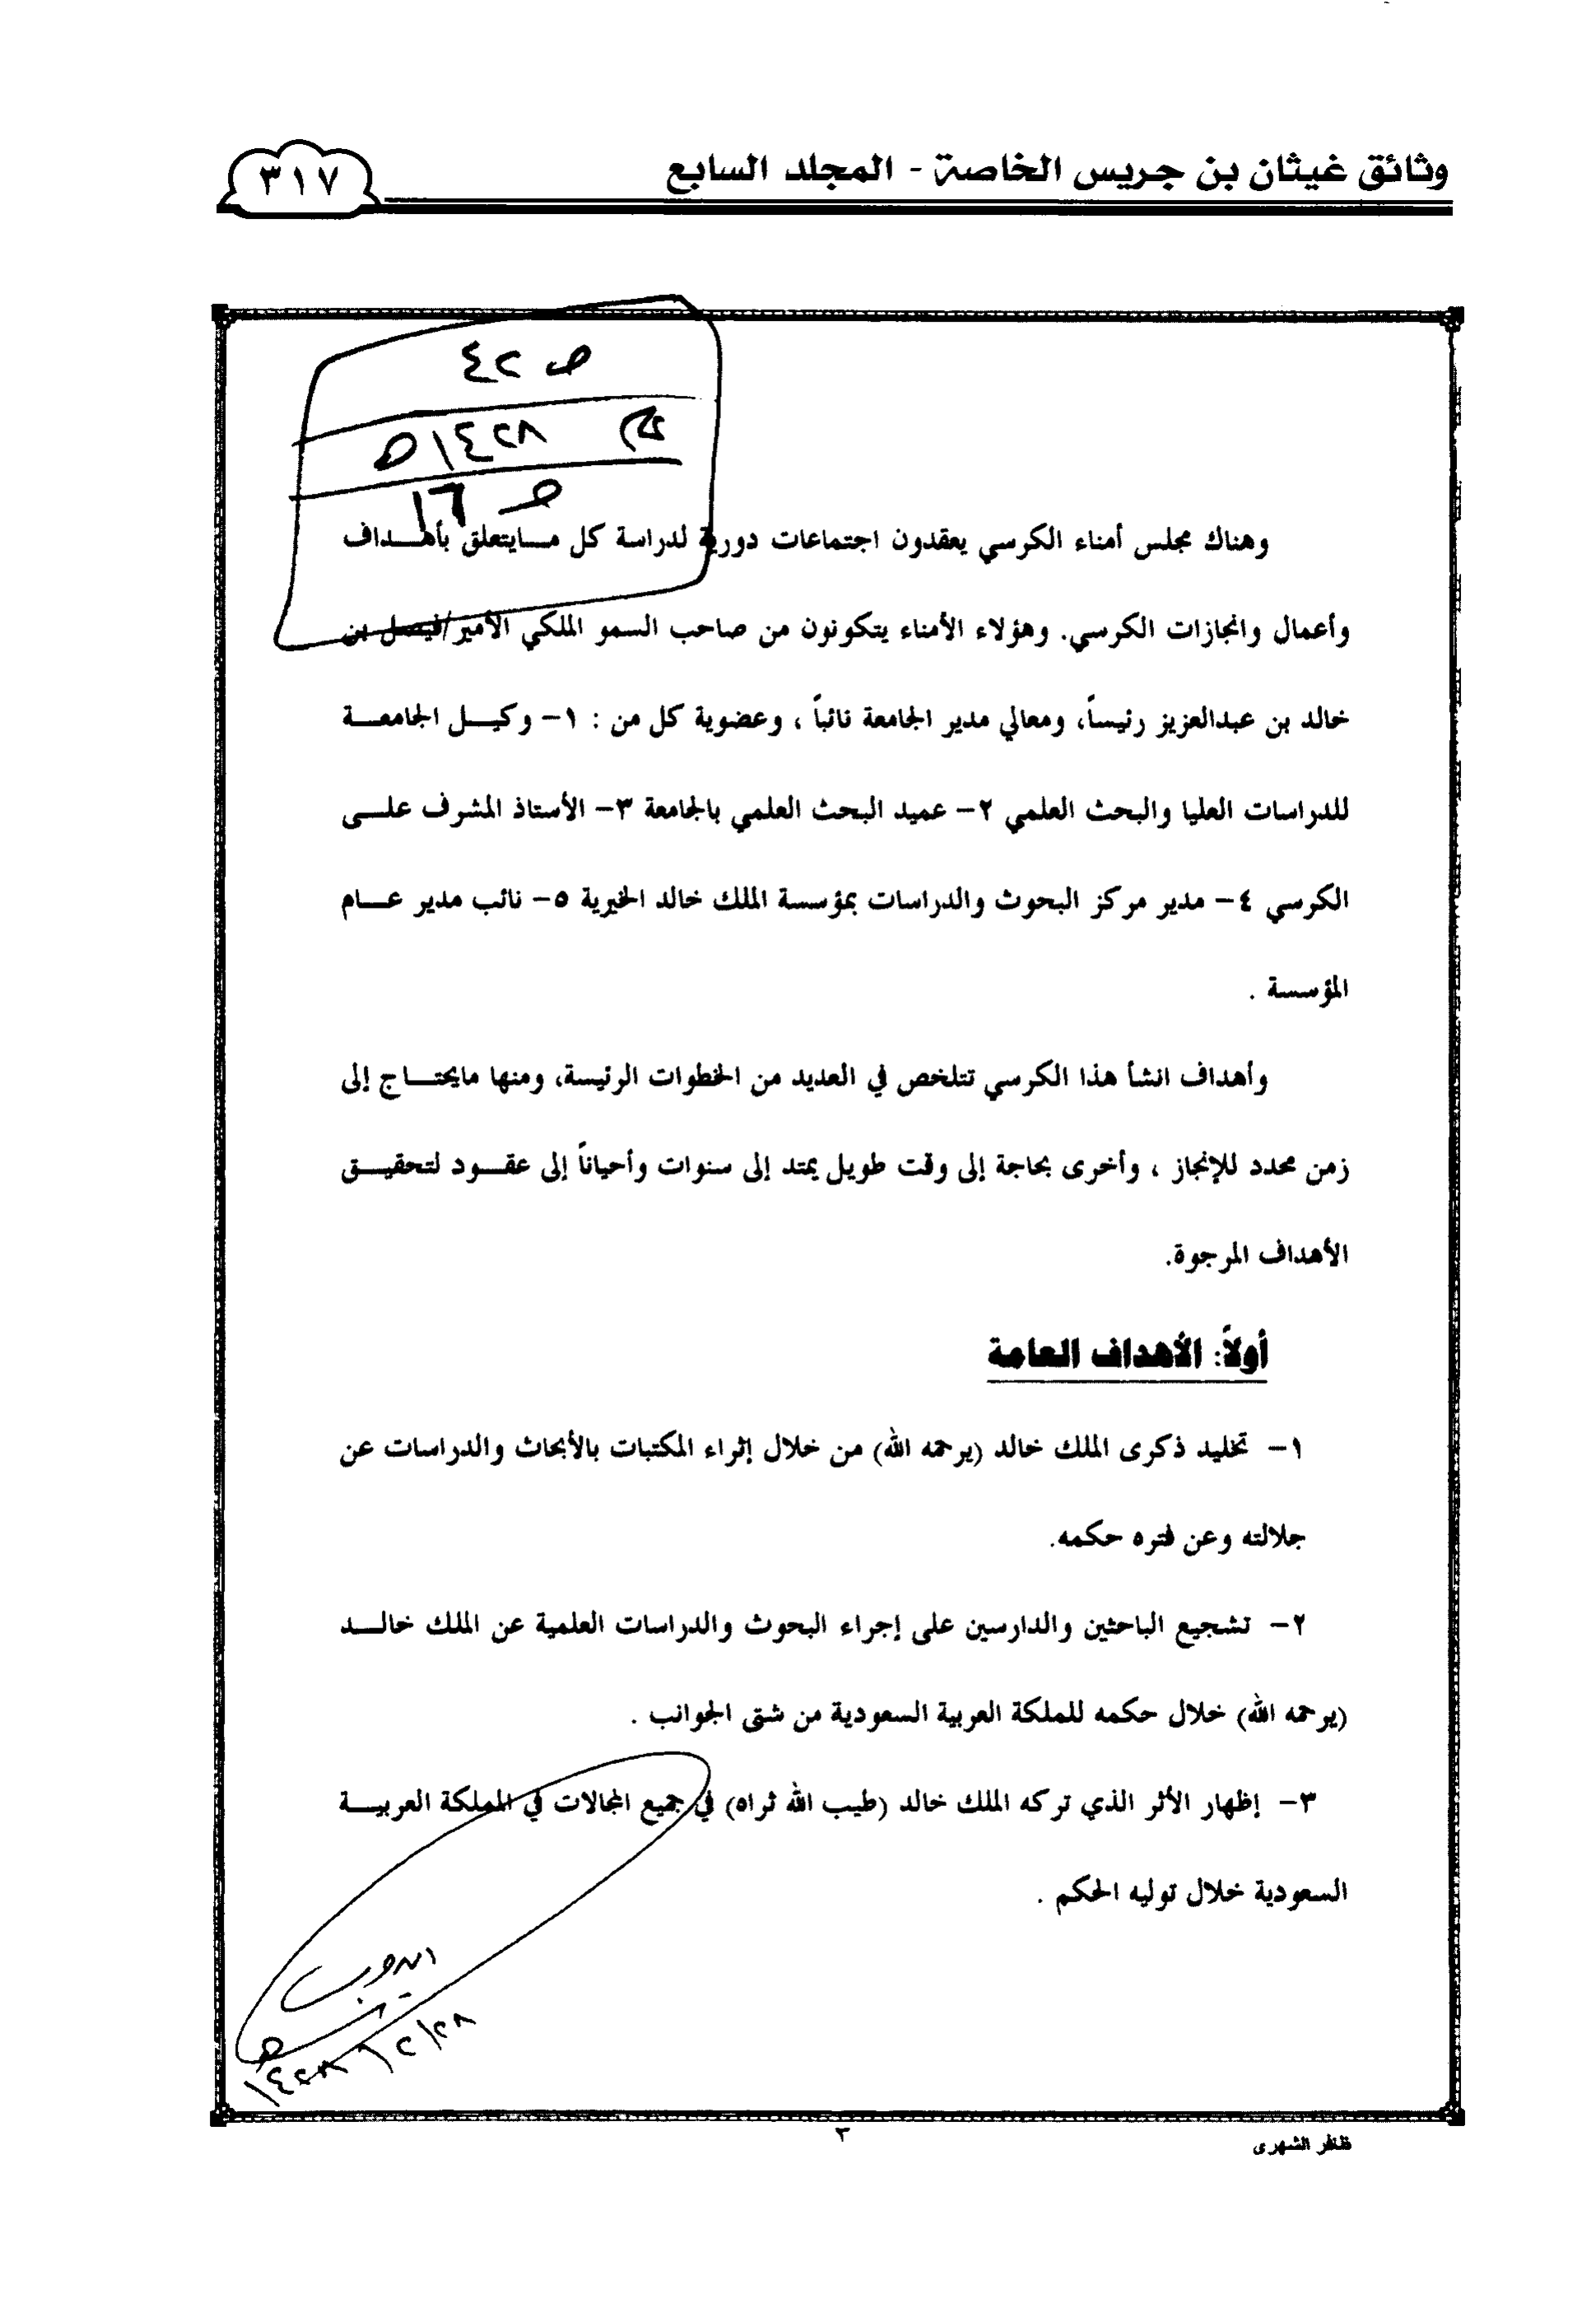 وثائق غيثان بن جريس الخاصة - المجلد السابع
٣١٧
ص ٤٢
١٤٢٨هـ
ص ١٦
وهناك مجلس أمناء الكرسي يعقدون اجتماعات دورية لدراسة كل مـــايتعلق بأهـــداف
وأعمال وانجازات الكرسي. وهؤلاء الأمناء يتكونون من صاحب السمو الملكي الأمير/فيصل بن
خالد بن عبدالعزيز رئيساً، ومعالي مدير الجامعة نائباً ، وعضوية كل من : ١- وكيـــل الجامعـــة
للدراسات العليا والبحث العلمي ٢- عميد البحث العلمي بالجامعة ٣- الأستاذ المشرف علـــى
الكرسي ٤- مدير مركز البحوث والدراسات بمؤسسة الملك خالد الخيرية ٥- نائب مدير عـــام
المؤسسة .
وأهداف انشأ هذا الكرسي تتلخص في العديد من الخطوات الرئيسة، ومنها مايحتـــاج إلى
زمن محدد للإنجاز ، وأخرى بحاجة إلى وقت طويل يمتد إلى سنوات وأحياناً إلى عقـــود لتحقيـــق
الأهداف المرجوة.
أولاً: الأهداف العامة
١- تخليد ذكرى الملك خالد (يرحمه الله) من خلال إثراء المكتبات بالأبحاث والدراسات عن
جلالته وعن فتره حكمه.
٢- تشجيع الباحثين والدارسين على إجراء البحوث والدراسات العلمية عن الملك خالـــد
(يرحمه الله) خلال حكمه للملكة العربية السعودية من شتى الجوانب .
٣- إظهار الأثر الذي تركه الملك خالد (طيب الله ثراه) في جميع المجالات في المملكة العربيـــة
السعودية خلال توليه الحكم .
٢٨/٢/١٤٢٨هـ
٣
ظافر الشهري